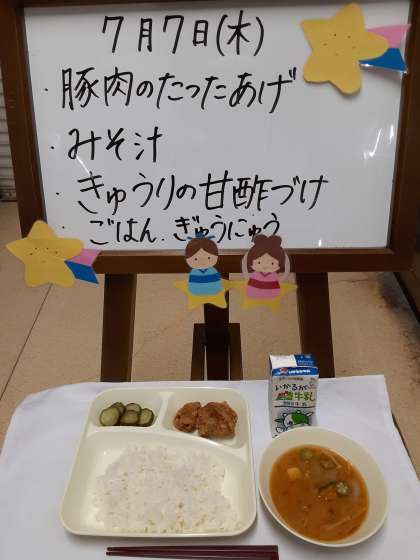 7月7日(木)
・豚肉のたったあげ
・みそ汁
・きゅうりの甘酢づけ
・ごはん、ぎゅうにゅう
いかるが
牛乳